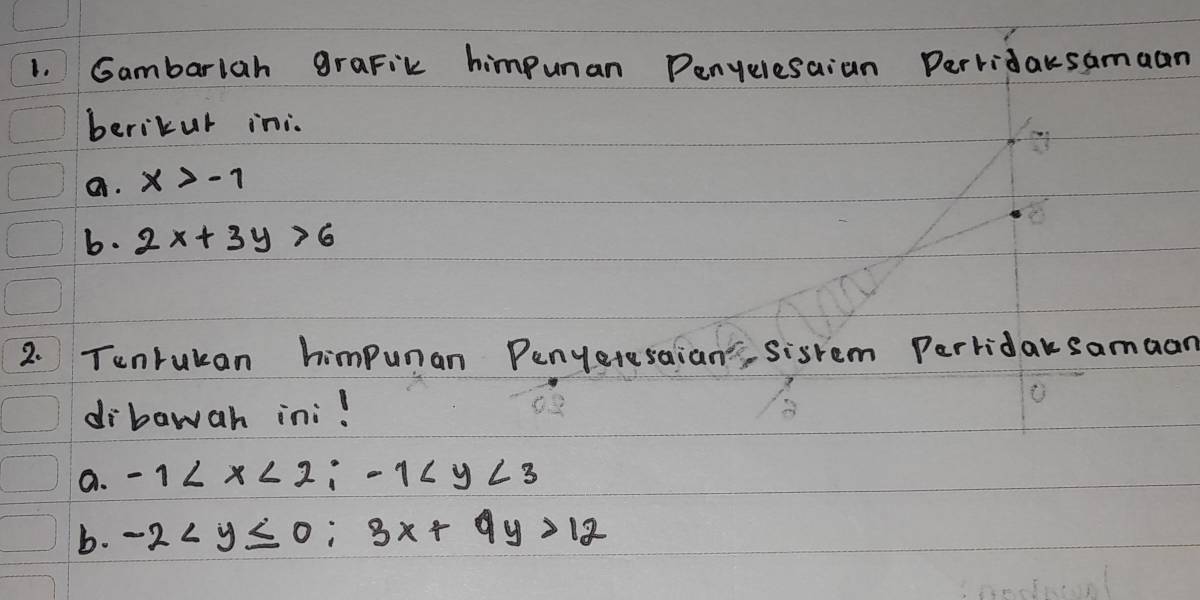 1. Gambarlah grafik himpunan Penyelesaian Pertidaksamaan
berikut ini.
a. x > -1
b. 2x + 3y > 6
2. Tentukan himpunan Penyelesaian Sistem Pertidaksamaan
dibawah ini!
a. -1 < x < 2; -1 < y < 3
b. -2 < y ≤ 0; 3x + 4y > 12
0